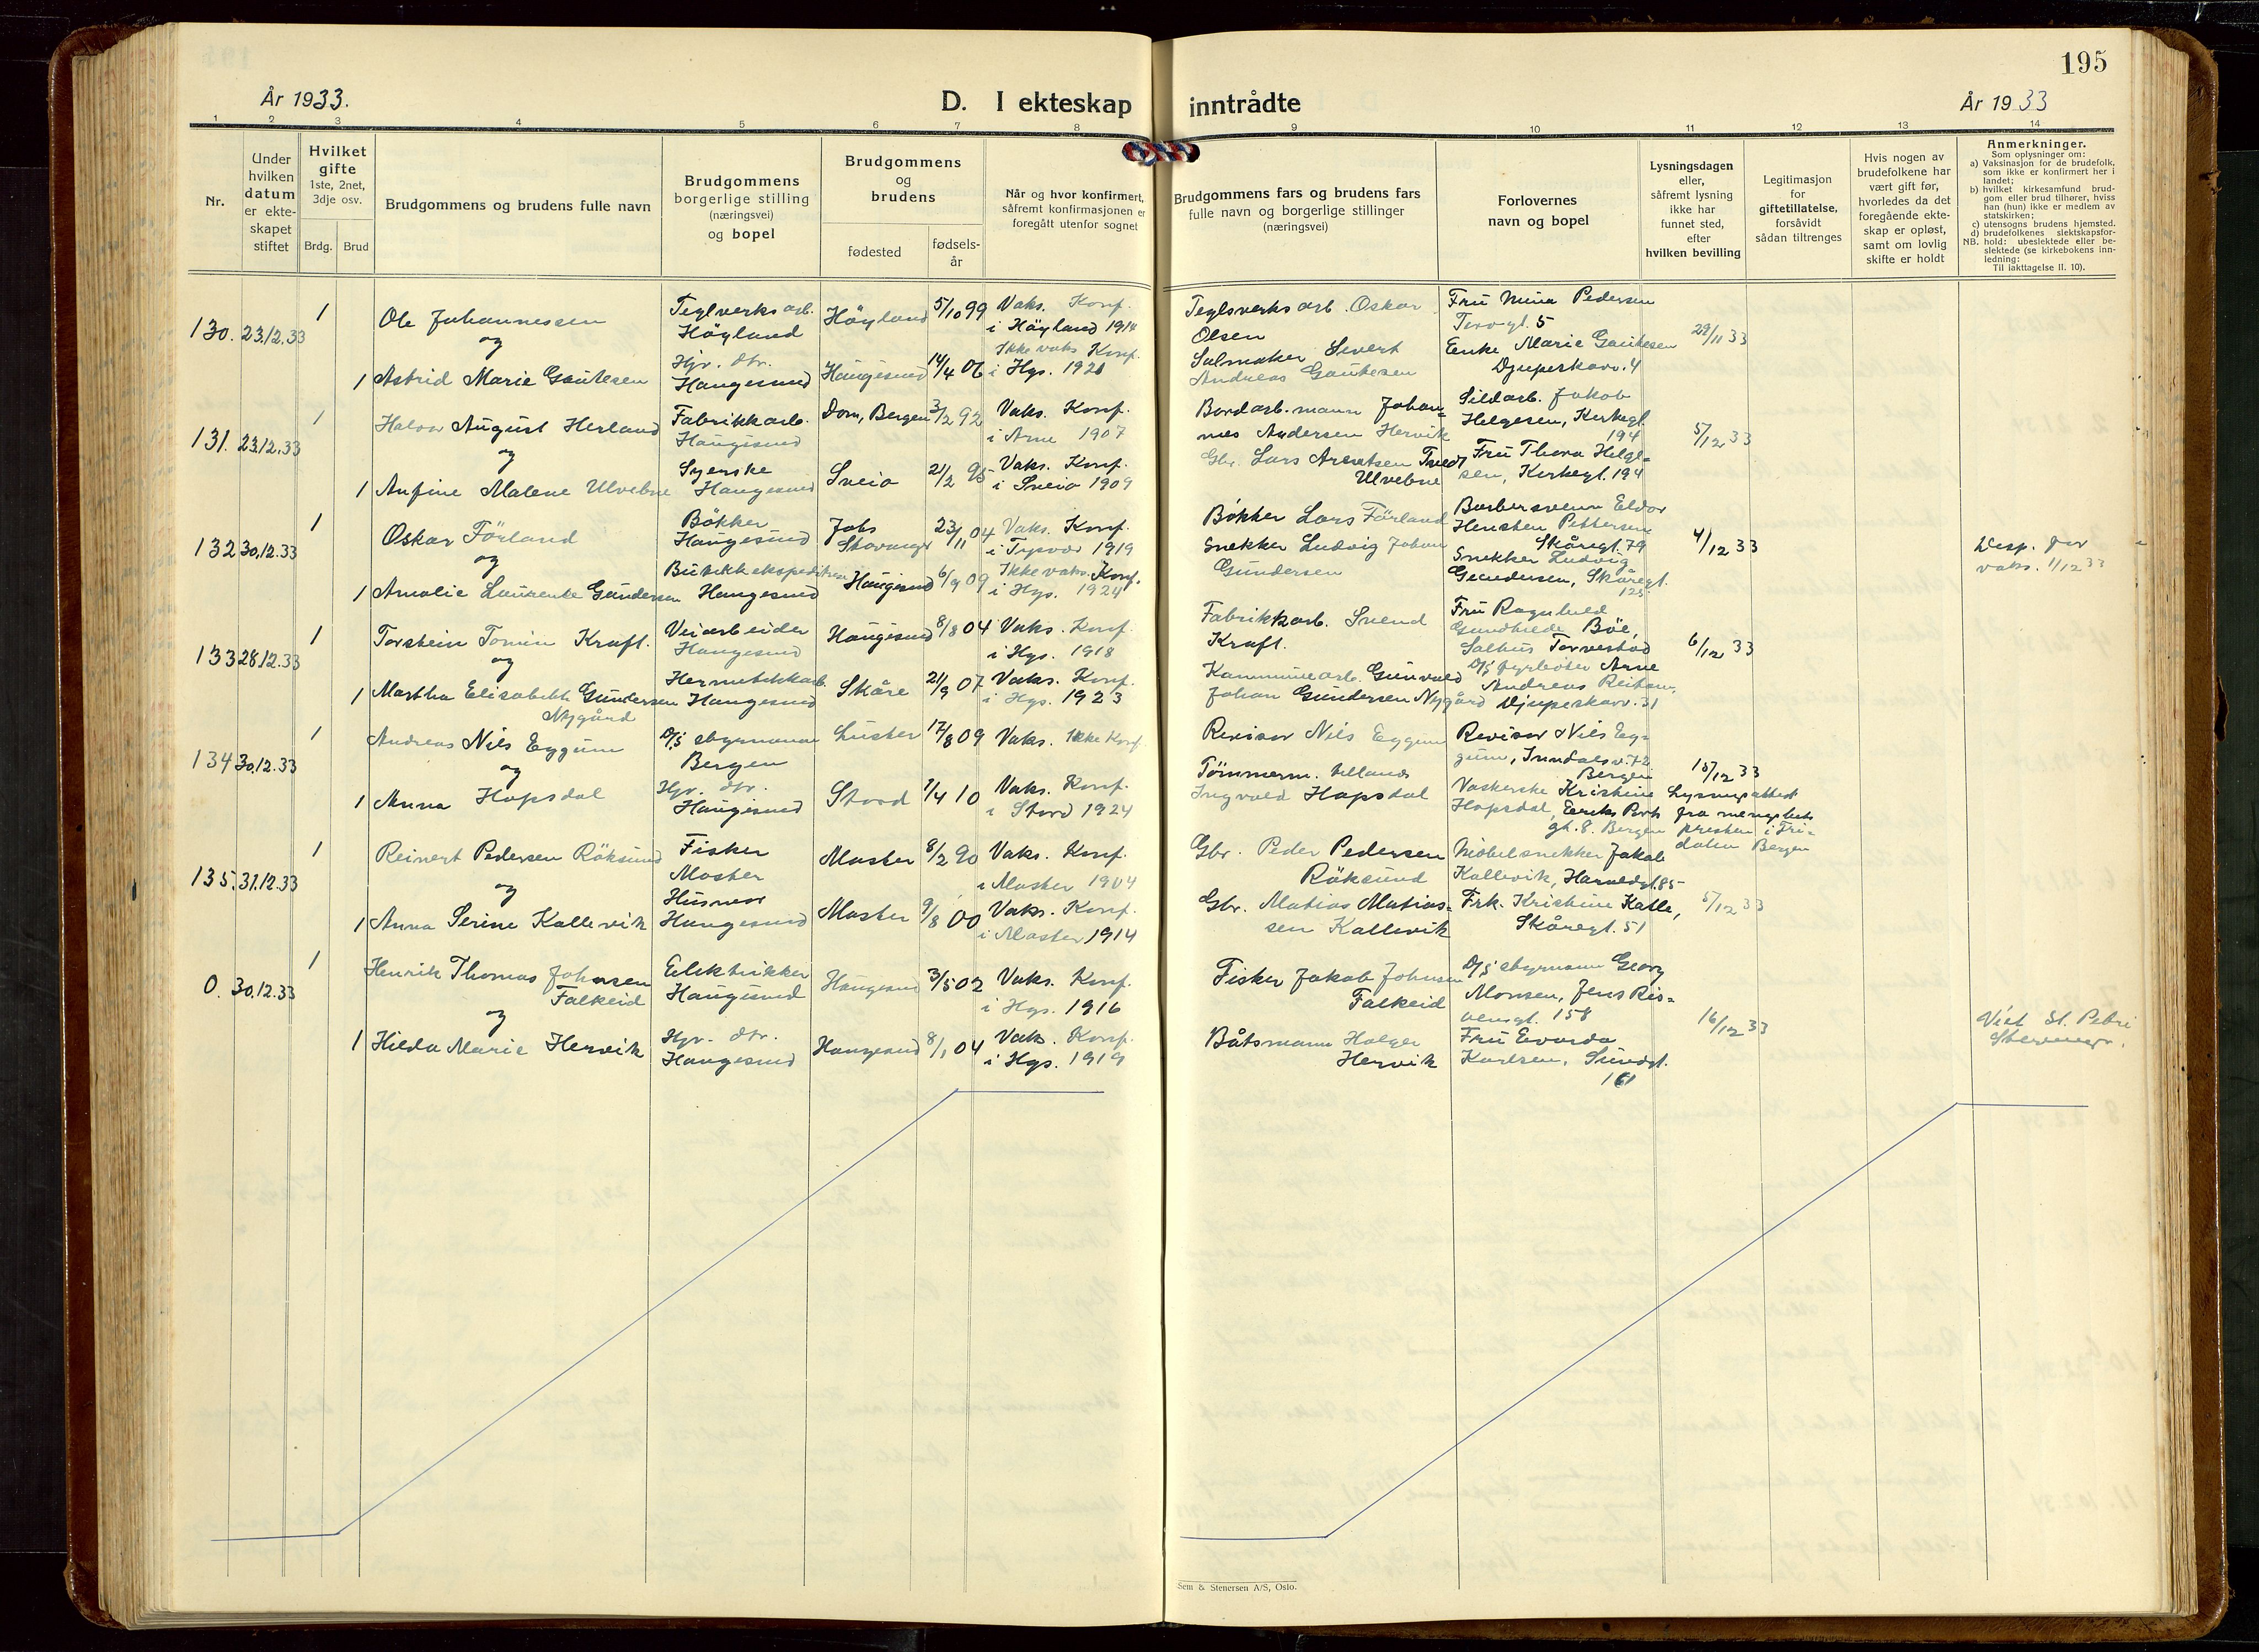 195
År 1933.
D. I ekteskap inntrådte
År 1933
1 2 3 4 5 6 7 8 9 10 11 12 13 14
Nr.
Under hvilken datum er ekteskapet stiftet
Hvilket gifte 1ste, 2net, 3dje osv.
Brdg. Brud
Brudgommens og brudens fulle navn
Brudgommens borgerlige stilling (næringsvei) og bopel
Brudgommens og brudens
fødested
fødselsår
Når og hvor konfirmert, såfremt konfirmasjonen er foregått utenfor sognet
Brudgommens fars og brudens fars fulle navn og borgerlige stillinger (næringsvei)
Forlovernes navn og bopel
Lysningsdagen eller, såfremt lysning ikke har funnet sted, efter hvilken bevilling
Legitimasjon for giftetillatelse, forsåvidt sådan tiltrenges
Hvis nogen av brudefolkene har vært gift før, hvorledes da det foregående ekteskap er opløst, samt om lovlig skifte er holdt
Anmerkninger.
Som oplysninger om:
a) Vaksinasjon for de brudefolk, som ikke er konfirmert her i landet;
b) hvilket kirkesamfund brudgom eller brud tilhører, hviss han (hun) ikke er medlem av statskirken;
c) utensogns brudens hjemsted.
d) brudefolkenes slektskapsforhold: ubeslektede eller beslektede (se kirkebokens innledning:
NB.
Til iakttagelse II. 10).
130. 23.12.33 1 Ole Johannessen
og
Teglverksarb. Höyland
Höyland 5/10 99
Vaks. Konf. i Höyland 1914
Teglsverksarb. Oskar Olsen
Fru Mina Pedersen
5
29/11 33
1 Astrid Marie Gautesen
Hjv. dtr. Haugesund
Haugesund 14/4 06
Ikke vaks Konf. i Hgs. 1921
Salmaker Sivert Andreas Gautesen
Enke Marie Gautesen Djupeskarv. 4
131. 23.12.33 1 Halvor August Herland
og
Fabrikkarb. Haugesund
Dom, Bergen 3/2 92
Vaks. Konf. i Arne 1907
Bordarb.mann Johannes Andersen Hervik
Sildarb. Jakob Helgesen, Kirkegt. 194
5/12 33
1 Anfine Malene Ulvebne
Syerske Haugesund
Sveio 21/2 95
Vaks. Konf. i Sveio 1909
Gbr. Lars Ulvebne
Fru Thora Helgesen, Kirkegt. 194
132 30.12.33 1 Oskar Förland
og
Bökker Haugesund
Stavanger 23/11 04
Vaks. Konf. i Tysvær 1919
Bökker Lars Förland
Barbersvenn Eldor Pettersen Skåregt. 79
4/12 33
1 Amalie Laurentse Gundersen
Butikkekspeditrise Haugesund
Haugesund 6/9 09
Ikke vaks. Konf. i Hgs. 1924
Snekker Ludvig Johan Gundersen
Snekker Ludvig Gundersen, Skåregt. 125
Disp. for vaks. 1/12 33
133 28.12.33 1 Torstein Tomin Kraft.
og
Veiarbeider Haugesund
Haugesund 8/8 04
Vaks. Konf. i Hgs. 1918
Fabrikkarb. Svend Kraft.
Fru Ragnhild Böe, Salhus Torvestad
6/12 33
1 Martha Elisabeth Gundersen Nygård
Hermetikkarb. Haugesund
Skåre 21/9 07
Vaks. Konf. i Hgs. 1923
Kommunearb. Gunvald Johan Gundersen Nygård
D/s fyrböter Arne Andreas Djupeskarv. 31
134 30.12.33 1 Andreas Nils Eggum
og
D/s styrmann Bergen
Luster 17/8 09
Vaks. Ikke Konf.
Revisor Nils Eggum
Revisor Nils Eggum, Inndalsv. 72 Bergen
15/12 33
Lysningsattest fra menighetspresten i Fridalen Bergen
1 Anna Hopsdal
Hjv. dtr. Haugesund
Stord 7/4 10
Vaks. Konf. i Stord 1924
Tömmerm. Ingvald Hopsdal
Vaskerske Kristine Hopsdal, gt. 8. Bergen
135. 31.12.33 1 Reinert Pedersen Röksund
og
Fisker Moster
Moster 8/2 90
Vaks. Konf. i Moster 1904
Gbr. Peder Pedersen Röksund
Möbelsnekker Jakob Kallevik, Haraldgt. 85
5/12 33
1 Anna Serine Kallevik
Husmor Haugesund
Moster 9/8 00
Vaks. Konf. i Moster 1914
Gbr. Matias Matiassen Kallevik
Frk. Kristine Kalle, Skåregt. 51
0. 30.12.33 1 Henrik Thomas Johnsen Falkeid
og
Elektrikker Haugesund
Haugesund 3/5 02
Vaks. Konf. i Hgs. 1916
Fisker Jakob Johnsen Falkeid
D/s styrmann Georg Monsen, Jens Risøensgt. 158
16/12 33
1 Hilda Marie Hervik
Hjv. dtr. Haugesund
Haugesund 8/1 04
Vaks. Konf. i Hgs. 1919
Båtsmann Holger Hervik
Fru Evarda Karlsen, Sundgt. 161
Viet St. Petri Stavanger.
Sem & Stenersen A/S, Oslo.